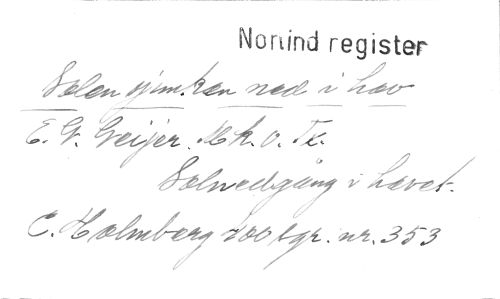 Norrind register
Solen sjunker ned i hav
E. G. Geijer. Mk. o. Tk.
Solnedgång i havet.
C. Holmberg 200 tgr. nr. 353